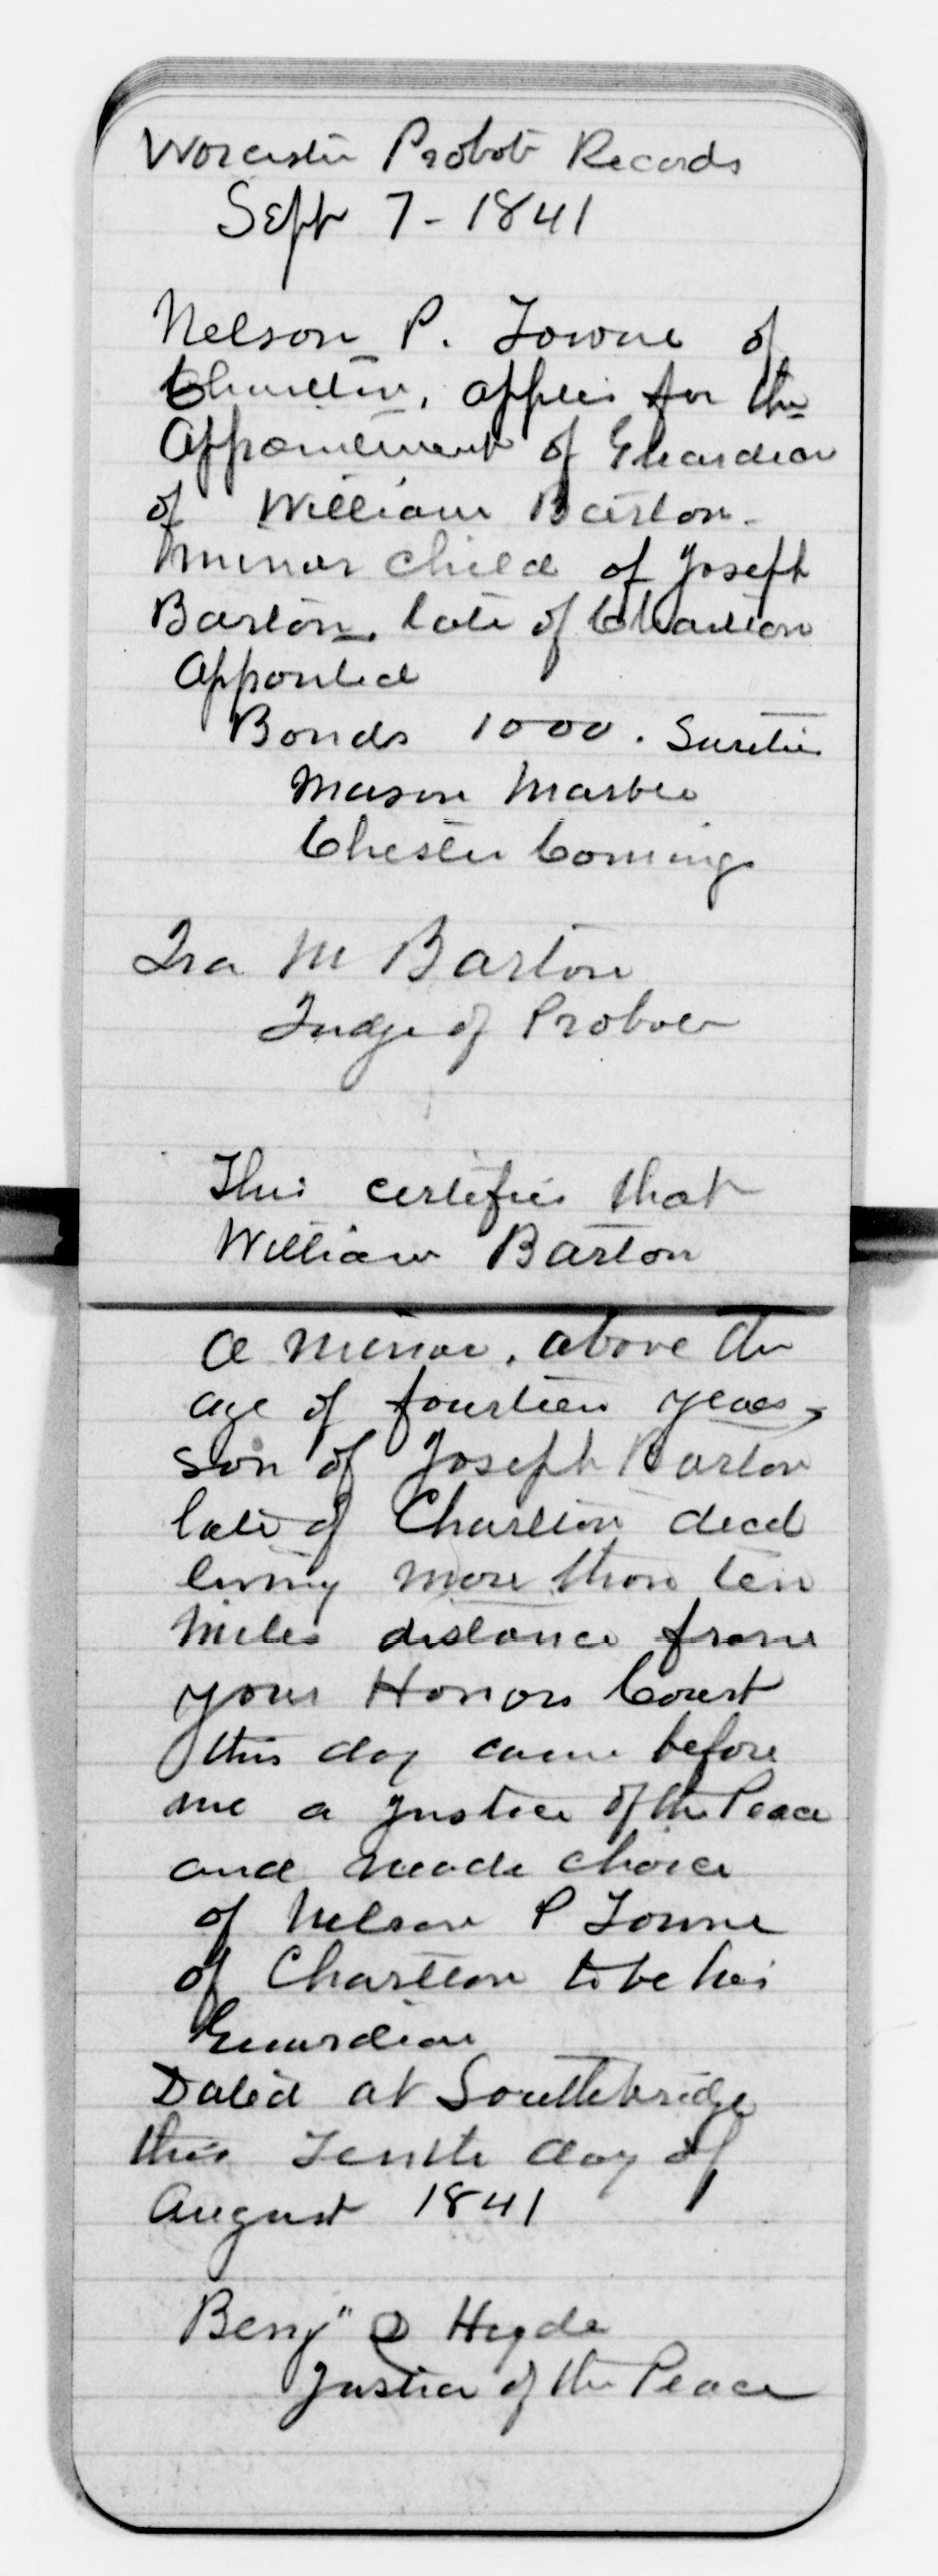 Worcester Probate Records
Sept 7 - 1841
Nelson P. Towne of
Charlton, applies for the
Appointment of Guardian
of William Barton -
minor child of Joseph
Barton, late of Charlton
Appointed
Bonds 1000. Sureties
Mason Marble
Chester Comings
Ira M Barton
Judge of Probate
This certifies that
William Barton
a minor, above the
age of fourteen years,
son of Joseph Barton
late of Charlton decd
living more than ten
miles distance from
your Honors Court
this day came before
me a Justice of the Peace
and made choice
of Nelson P Towne
of Charlton to be his
Guardian
Dated at Southbridge
this Tenth day of
August 1841
Benj" D Hyde
Justice of the Peace